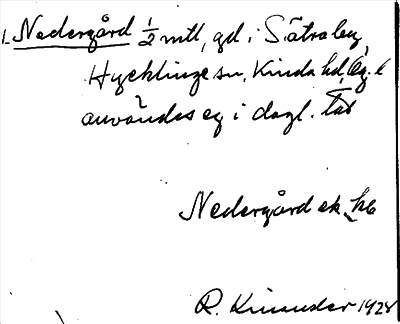 1. Nedergård ½ mtl, gd i Sätra by
Hycklinge sn, Kinda hd, Ög. l
användes ej i dagl. tal
Nedergård ek hb
R. Kinander 1928